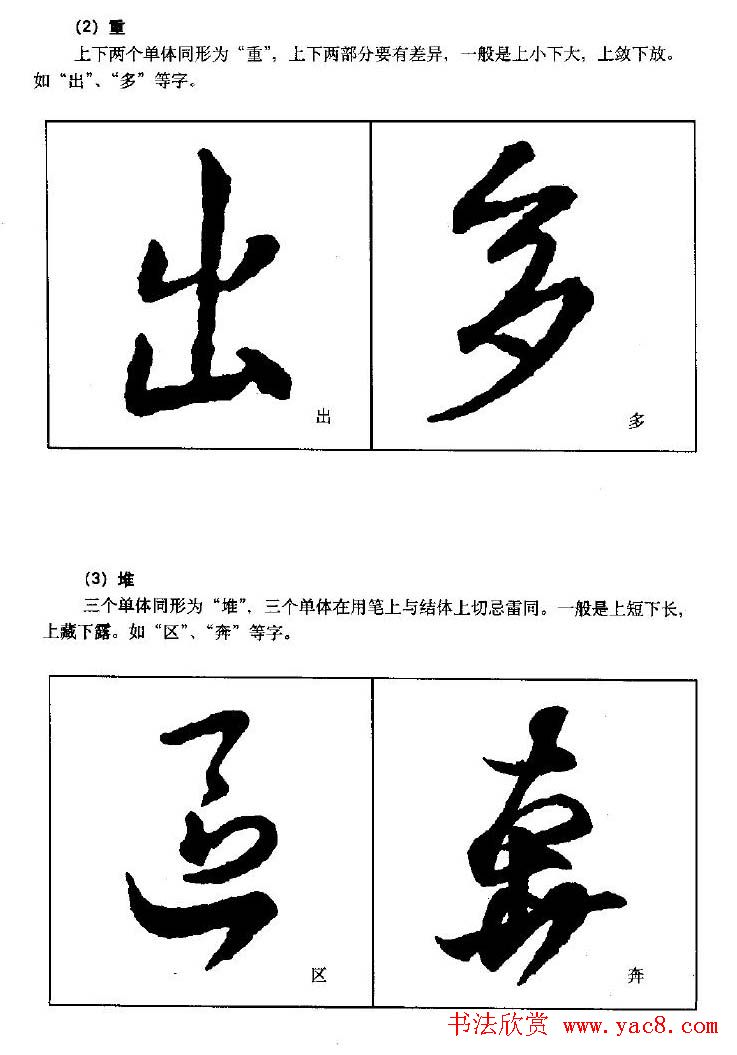 （2）重
上下两个单体同形为“重”，上下两部分要有差异，一般是上小下大，上敛下放。
如“出”、“多”等字。
出 多
出 多
（3）堆
三个单体同形为“堆”，三个单体在用笔上与结体上切忌雷同。一般是上短下长，
上藏下露。如“区”、“奔”等字。
区 奔
区 奔
书法欣赏 www.yac8.com